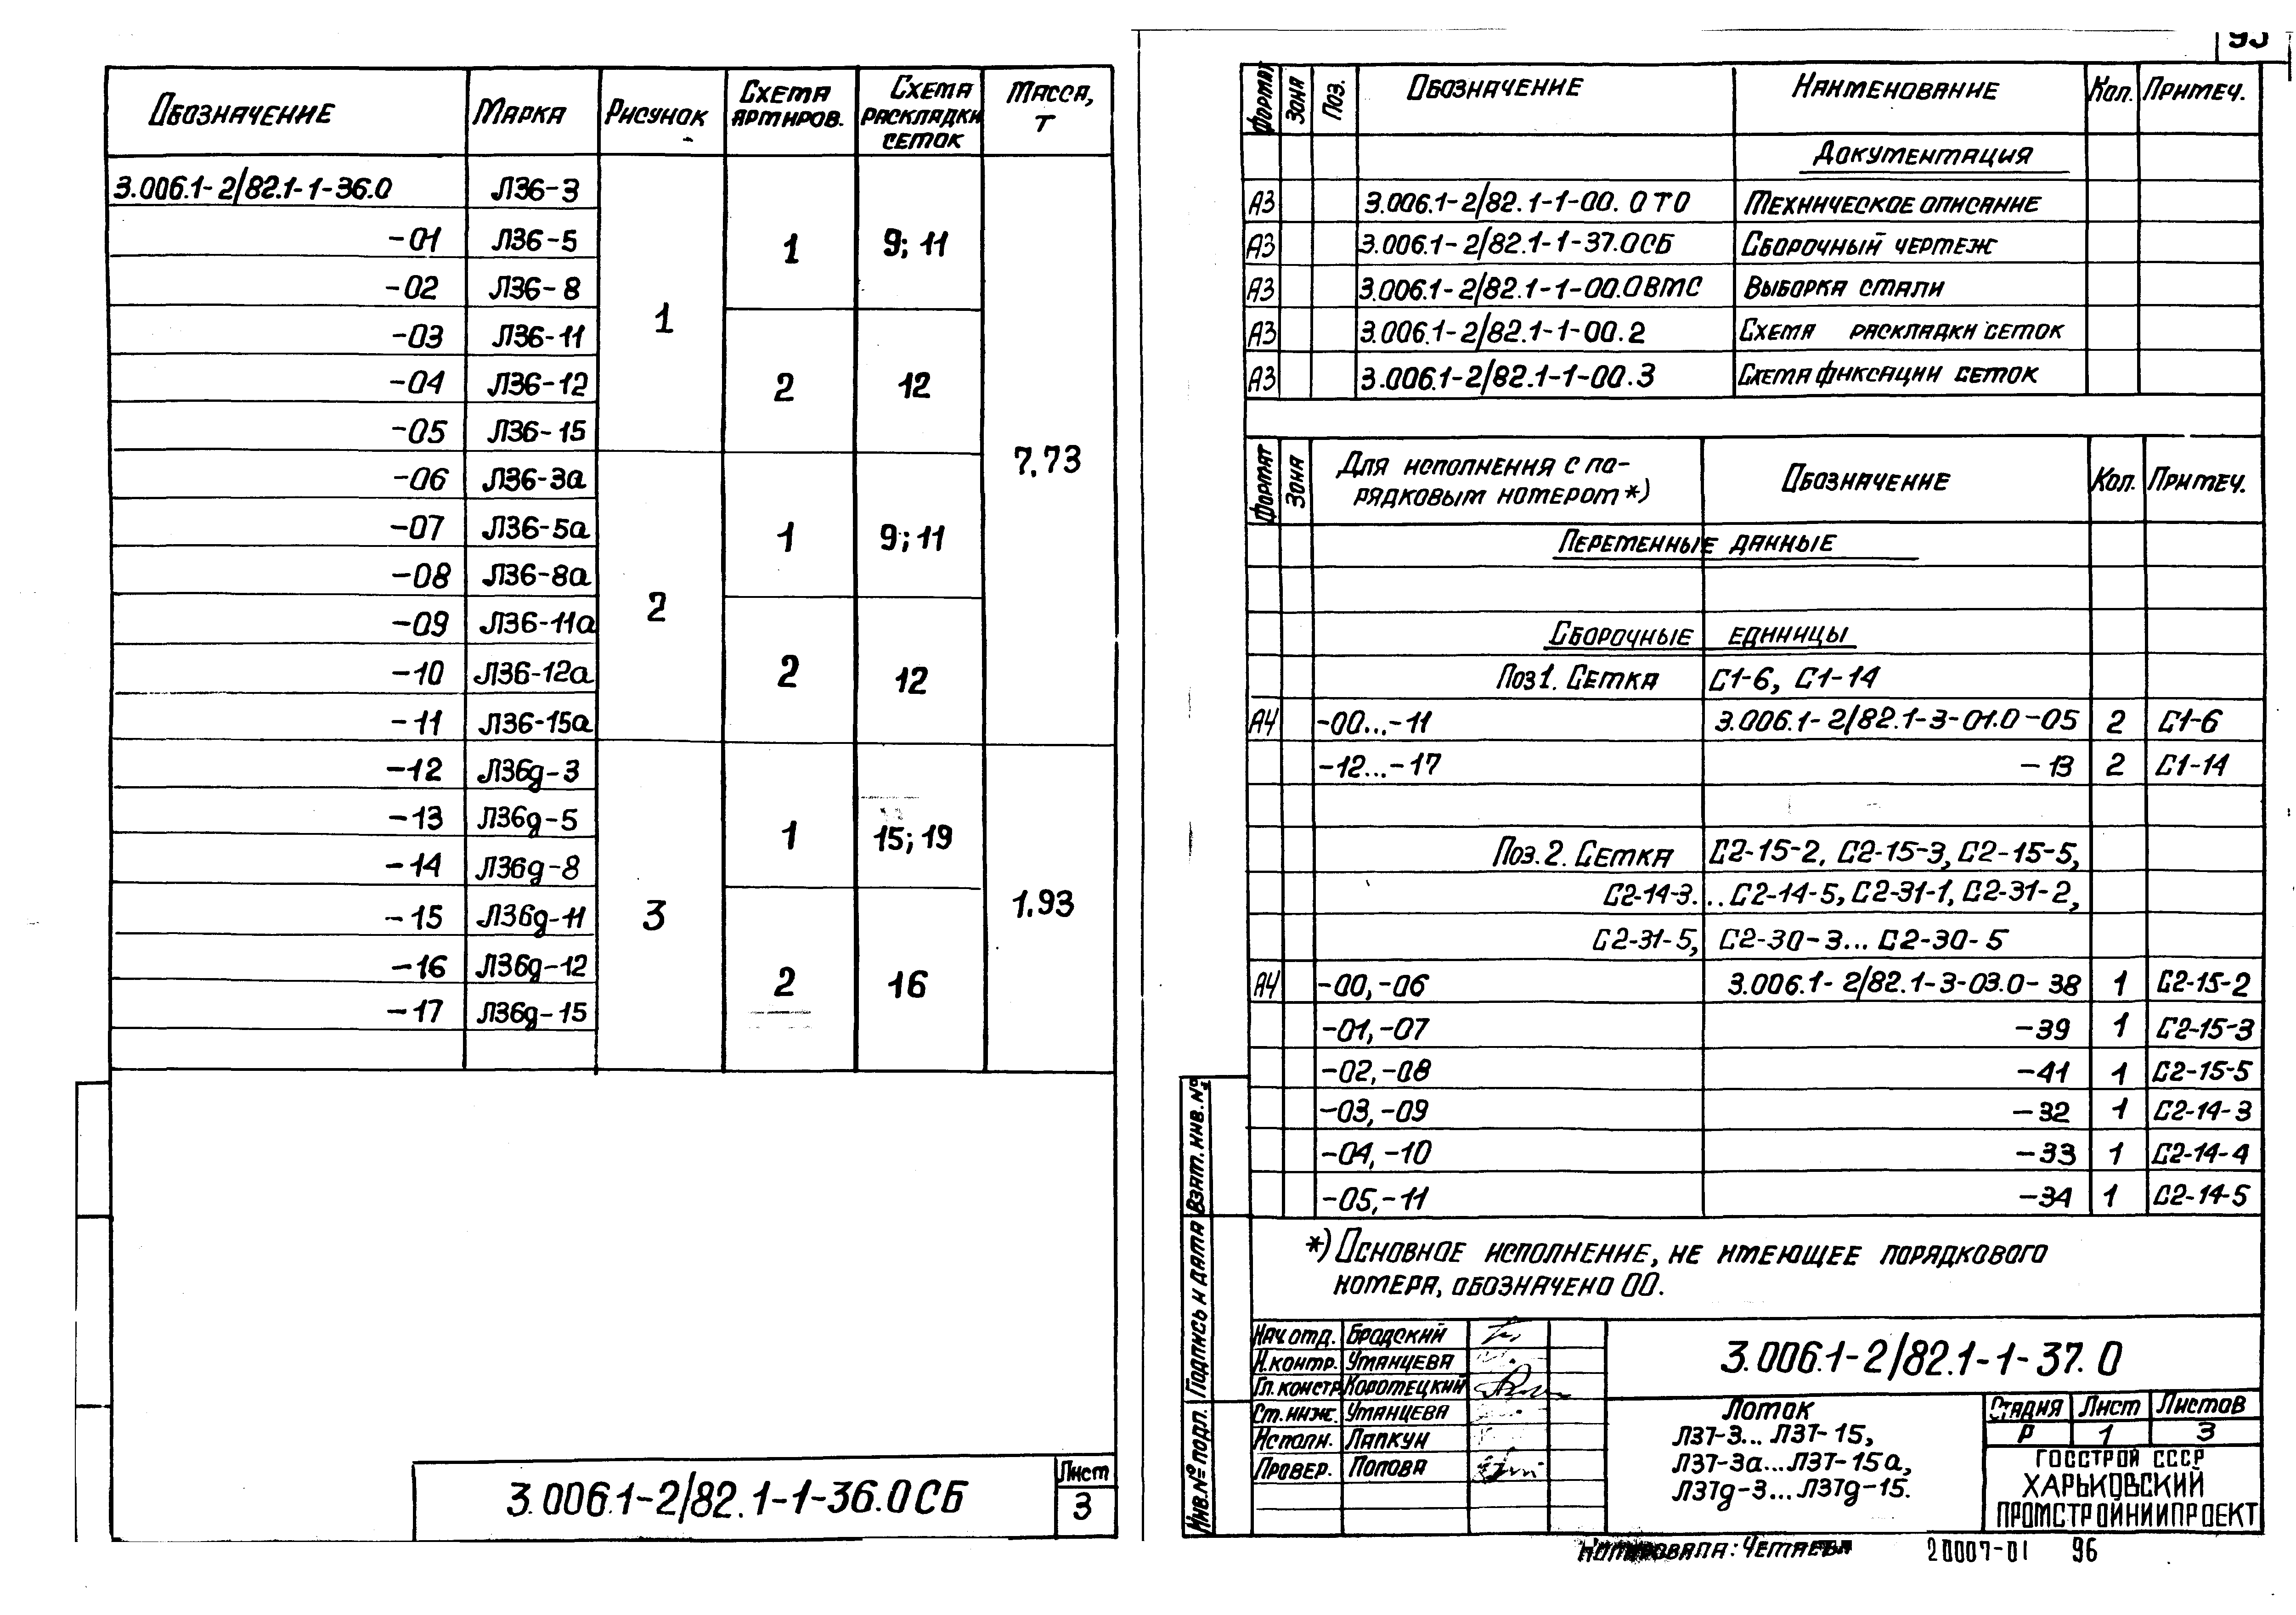 Обозначение Марка Рисунок Схема армиров. Схема раскладки сеток Масса, т
3.006.1-2/82.1-1-36.0 Л36-3 1 1 9; 11 7,73
-01 Л36-5
-02 Л36-8
-03 Л36-11 2 12
-04 Л36-12
-05 Л36-15
-06 Л36-3а 2 1 9; 11
-07 Л36-5а
-08 Л36-8а
-09 Л36-11а 2 12
-10 Л36-12а
-11 Л36-15а
-12 Л36д-3 3 1 15; 19 1,93
-13 Л36д-5
-14 Л36д-8
-15 Л36д-11 2 16
-16 Л36д-12
-17 Л36д-15
3.006.1-2/82.1-1-36.0СБ
Лист
3
Формат Зона Поз. Обозначение Наименование Кол. Примеч.
Документация
А3 3.006.1-2/82.1-1-00.0ТО Техническое описание
А3 3.006.1-2/82.1-1-37.0СБ Сборочный чертеж
А3 3.006.1-2/82.1-1-00.0ВМС Выборка стали
А3 3.006.1-2/82.1-1-00.2 Схема раскладки сеток
А3 3.006.1-2/82.1-1-00.3 Схема фиксации сеток
Формат Зона Для исполнения с по-
рядковым номером *) Обозначение Кол. Примеч.
Переменные данные
Сборочные единицы
Поз1. Сетка С1-6, С1-14
А4 -00...-11 3.006.1-2/82.1-3-01.0-05 2 С1-6
-12...-17 -13 2 С1-14
Поз.2. Сетка С2-15-2, С2-15-3, С2-15-5,
С2-14-3...С2-14-5, С2-31-1, С2-31-2,
С2-31-5, С2-30-3...С2-30-5
А4 -00,-06 3.006.1-2/82.1-3-03.0-38 1 С2-15-2
-01,-07 -39 1 С2-15-3
-02,-08 -41 1 С2-15-5
-03,-09 -32 1 С2-14-3
-04,-10 -33 1 С2-14-4
-05,-11 -34 1 С2-14-5
*) Основное исполнение, не имеющее порядкового
номера, обозначено 00.
Взам. инв. №
Подпись и дата
Инв. № подл.
Нач.отд. Бродский
Н.контр. Уманцева
Гл.констр. Коротецкий
Ст.инж. Уманцева
Исполн. Лапкун
Провер. Попова
3.006.1-2/82.1-1-37.0
Лоток
Л37-3...Л37-15,
Л37-3а...Л37-15а,
Л37д-3...Л37д-15.
Стадия Лист Листов
Р 1 3
ГОССТРОЙ СССР
ХАРЬКОВСКИЙ
ПРОМСТРОЙНИИПРОЕКТ
20007-01 96